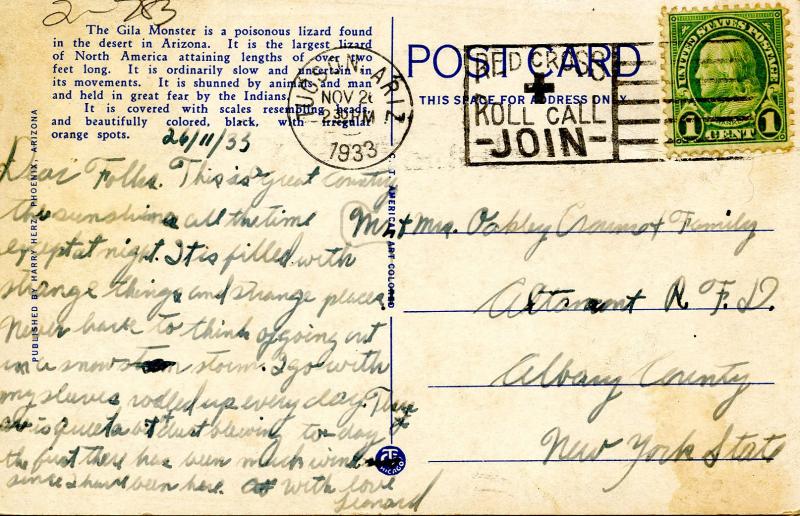 2-783
The Gila Monster is a poisonous lizard found
in the desert in Arizona. It is the largest lizard
of North America attaining lengths of over two
feet long. It is ordinarily slow and uncertain in
its movements. It is shunned by animals and man
and held in great fear by the Indians.
It is covered with scales resembling beads,
and beautifully colored, black, with irregular
orange spots.
26/11/33
Dear Folks. This is great country
the sunshine all the time
except at night. It is filled with
strange things and strange places.
Never have to think of going out
in a snow storm. I go with
my sleeves rolled up every day. There
is quite a bit dust blowing to-day
the first there has been much wind
since I have been here. With love
Leonard
PUBLISHED BY HARRY HERZ, PHOENIX, ARIZONA
C. T. AMERICAN ART COLORED
CHICAGO
POST CARD
THIS SPACE FOR ADDRESS ONLY
TUCSON, ARIZ.
NOV 26
2:30 PM
1933
RED CROSS
ROLL CALL
-JOIN-
UNITED STATES POSTAGE
1 CENT 1
Mr + Mrs. Oakley Crounse + Family
Altamont R.F.D.
Albany County
New York State